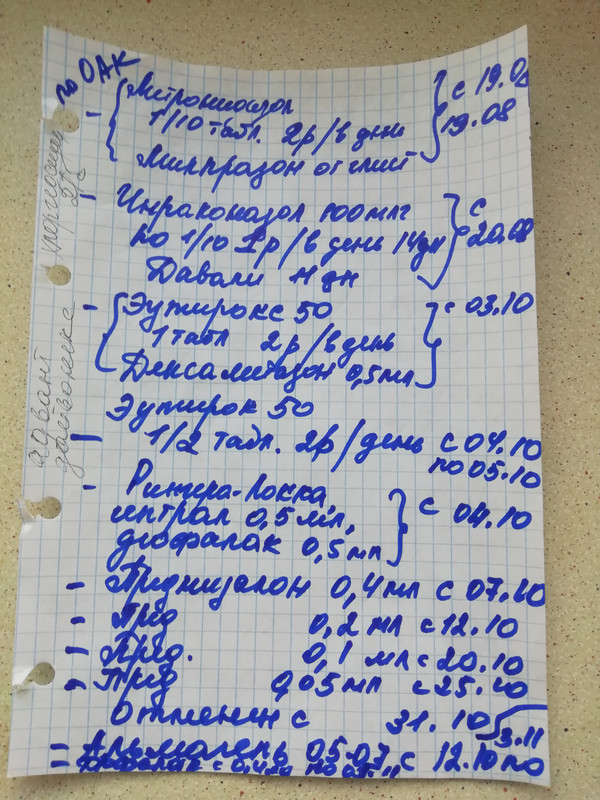 по ОАК
Метронидазол
1/10 табл. 2р/в день
с 19.08
19.08
Милпразон от глист
Интраконазол 100млг
по 1/10 1р/в день 14дн
с 20.08
Давали 11 дн
Эутирокс 50
с 03.10
1 табл 2р/в день
Дексаметазон 0,5мл
Эутирок 50
1/2 табл. 2р/день с 04.10
по 05.10
Рингера-Локка,
0,5мл,
с 04.10
дюфалак 0,5мл
Преднизалон 0,4мл с 07.10
Пред 0,2 мл с 12.10
Пред. 0,1 мл с 20.10
Пред 0,05мл с 25.10
Отменен с 31.10
3.11
Альмогель 05 с 12.10 по
адвант